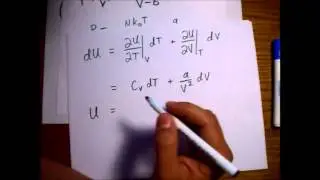 V V-b
P = Nk_BT a
dU = ∂U/∂T|_V dT + ∂U/∂V|_T dV
= C_V dT + a/V² dV
U =